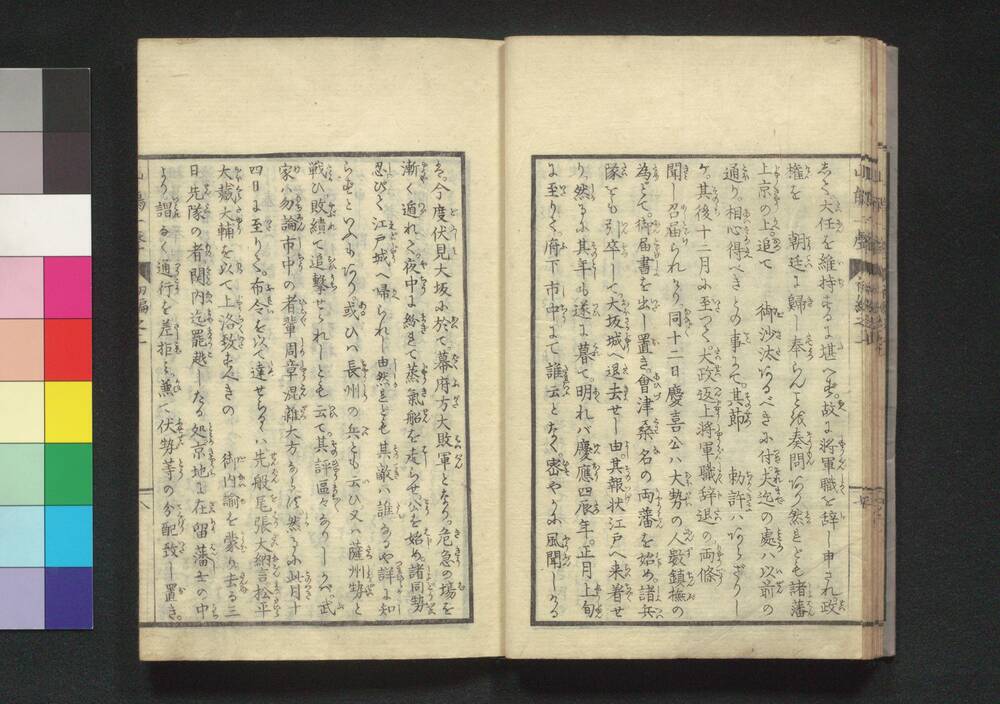 大任を維持するに堪へず。故に将軍職を辞し申され政
権を　朝廷に歸し奉らんと被奏問ありと然れとも諸藩
上京の上。追て　御沙汰あるべきに付夫迄の處ハ以前の
通り。相心得べきとの事にて。其節　勅許ハあらざりし
其後十二月に至つて。大政返上将軍職辞退の両條
聞し召届られけり同十二日慶喜公ハ大勢の人數鎮撫の
為とて。御届書を出し置き。會津桑名の両藩を始め。諸兵
隊とも引卒して大坂城へ退去せし由其報状江戸へ来着せ
り然るに其年も遂に暮て。明れバ慶應四辰年。正月上旬
に至りて。府下市中にて誰云となく。密やかに風聞しける
ハ。今度伏見大坂に於て。幕府方大敗軍となり。危急の場を
漸く遁れて。夜中に紛れて蒸氣船を走らせ。公を始め。諸同勢
忍びて江戸城へ帰られし由然れども其敵ハ誰なるや詳に知
らずといへどもあり。或ひハ長州の兵とも云ひ又ハ薩州勢と
戦ひ敗績て追撃せられしとも云て其評區々なりしかバ武
家ハ勿論市中の者輩周章混雑大方ならず然るに此月十
四日に至りて。布令を以て達せらるハ先般尾張大納言松平
大藏大輔を以て上洛致すべきの　御内諭を蒙り去る三
日先隊の者関内迄罷越したる処京地に在留藩士の中
より謂なく通行を差拒ミ。兼て伏勢等の分配致し置き。